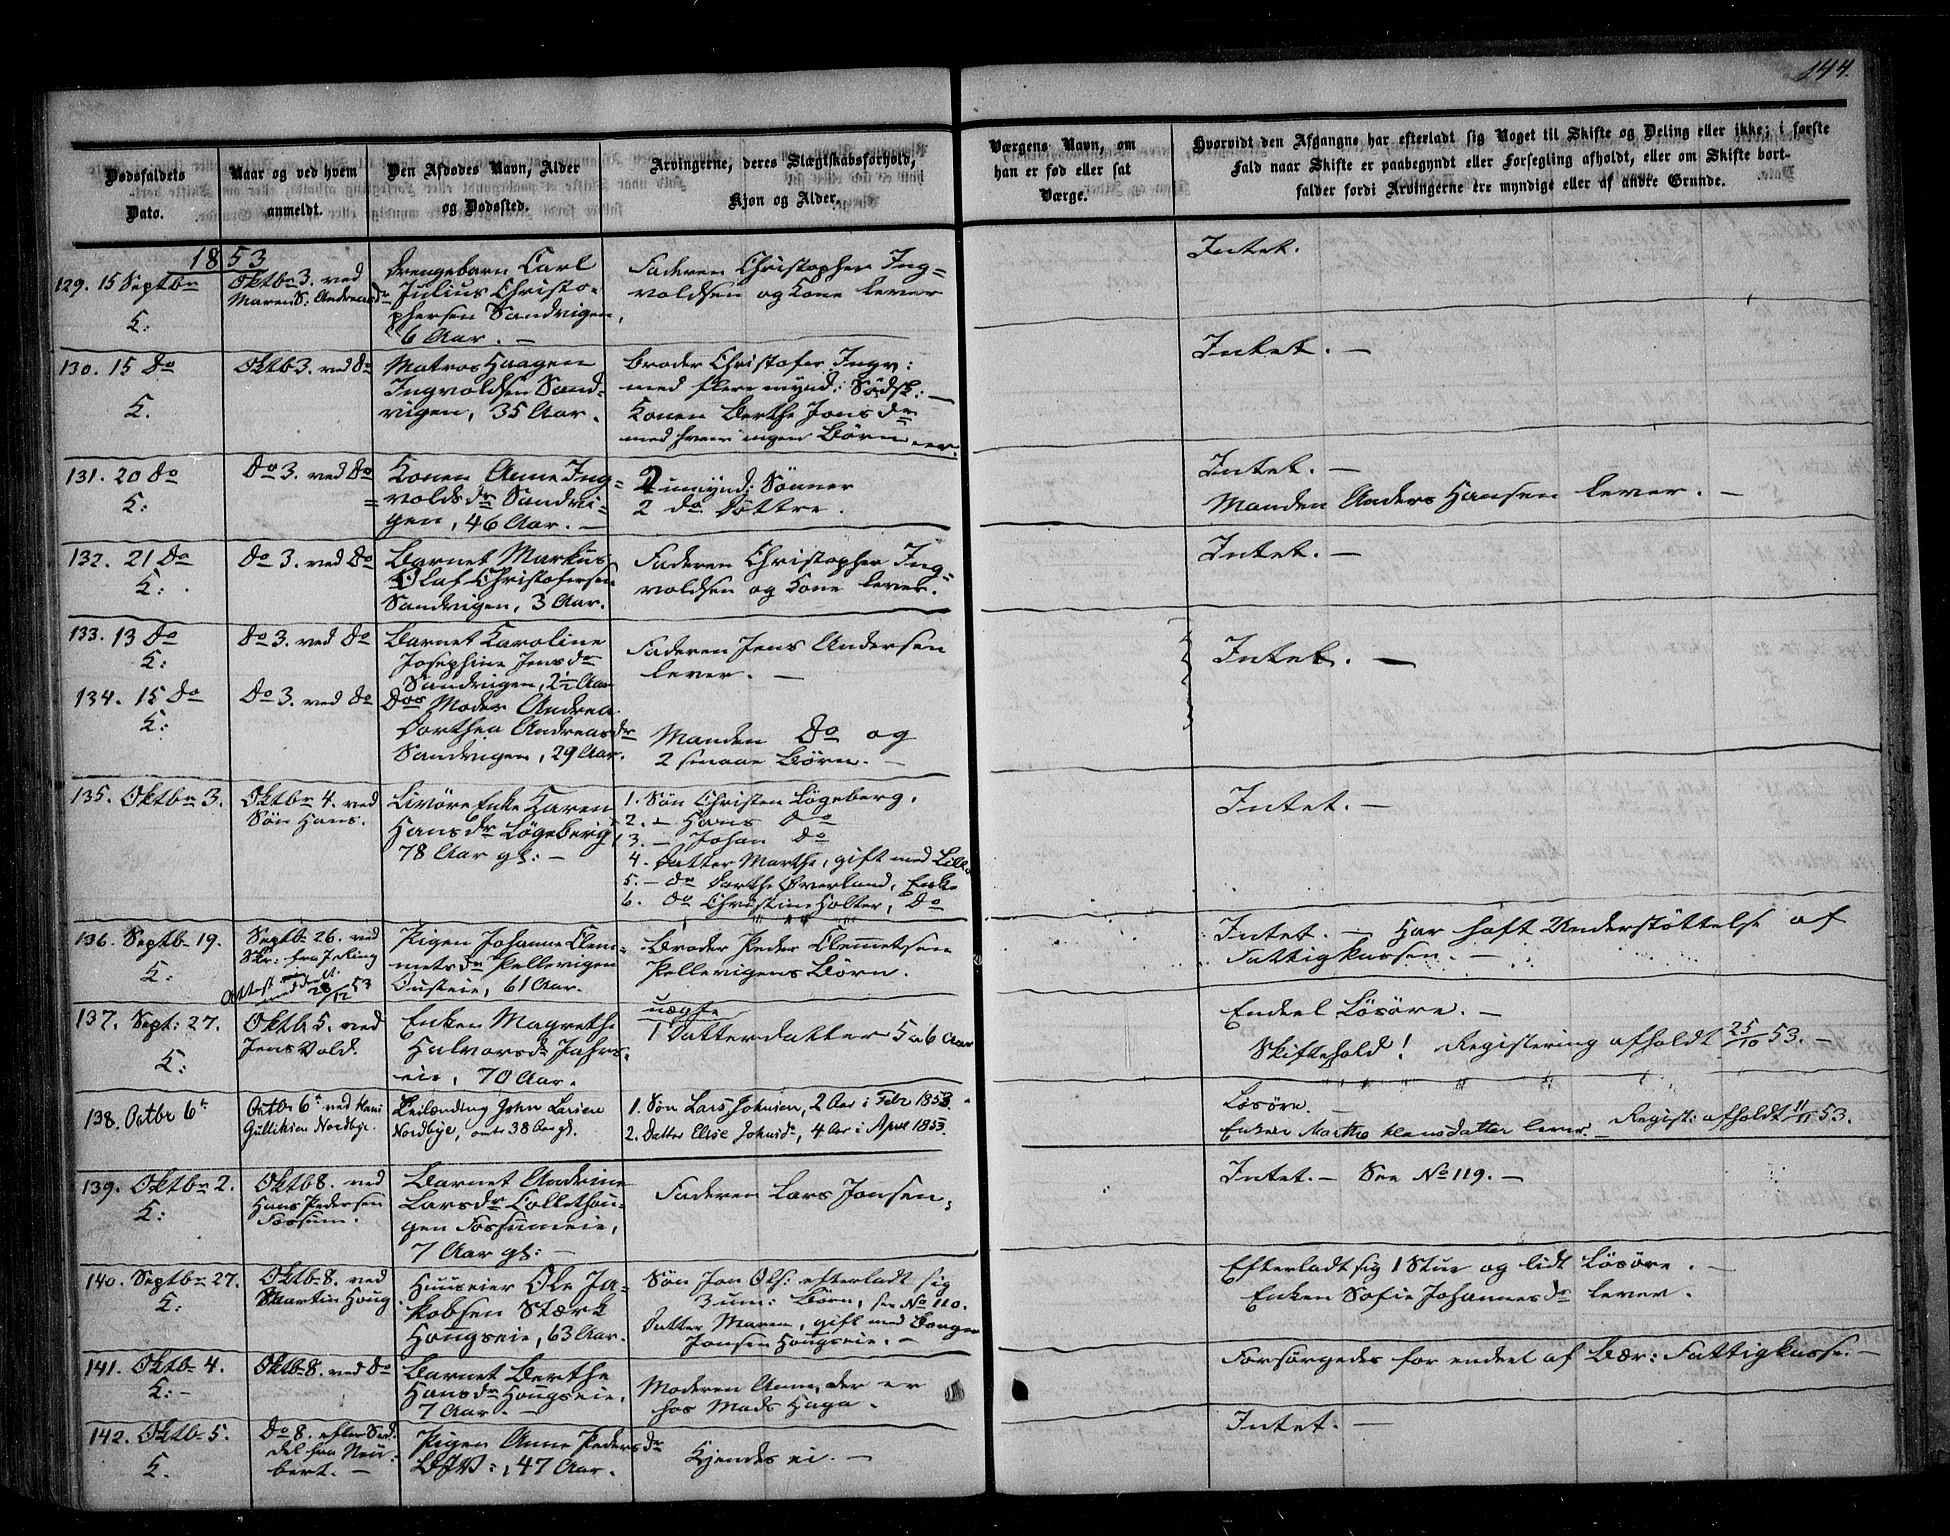 144.
Dødsfaldets
Dato.
Naar og ved hvem
anmeldt.
Den Afdødes Navn, Alder
og Dødssted.
Arvingerne, deres Slægtskabsforhold,
Kjøn og Alder.
Værgens Navn, om
han er fød eller sat
Værge.
Hvorvidt den Afgangne har efterladt sig Noget til Skifte og Deling eller ikke; i første
Fald naar Skifte er paabegyndt eller Forsegling afholdt, eller om Skifte bort-
falder fordi Arvingerne ere myndige eller af andre Grunde.
1853
129. 15 Septbr
K:
Oktbr 3. ved
Maren S: Andreasdr
Drengebarn Carl
Julius Christo-
phersen Sandvigen,
6 Aar. —
Faderen Christopher Ing-
voldsen og Kone lever
Intet.
130. 15 Do
K.
Oktb 3. ved Do
Matros Haagen
Ingvoldsen Sand-
vigen, 35 Aar.
Broder Christofer Ingv:
med flere mynd: Sødsk: —
Konen Berthe Jonsdr
med hvem ingen Børn er.
Intet. —
131. 20 Do
K:
Do 3. ved Do
Konen Anne Ing-
voldsdr Sandvi-
gen, 46 Aar. —
2 umynd: Sønner
2 do Døttre.
Intet. —
Manden Anders Hansen lever. —
132. 21 Do
K:
Do 3. ved Do
Barnet Markus
Olaf Christofersen
Sandvigen, 3 Aar.
Faderen Christopher Ing-
voldsen og Kone lever.
Intet. —
133. 13 Do
K:
Do 3. ved Do
Barnet Karoline
Josephine Jensdr
Sandvigen, 2½ Aar
Faderen Jens Andersen
lever. —
Intet. —
134. 15 Do
K:
Do 3. ved Do
Dos Moder Andrea
Dorthea Andreasdr
Sandvigen, 29 Aar.
Manden Do og
2 smaae Børn. —
135. Oktbr 3.
Oktbr 4. ved
Søn Hans.
Livøre Enke Karen
Hansdr Løgeberg,
78 Aar gl: —
1. Søn Christen Løgeberg,
2. — Hans Do
3. — Johan Do
4. Datter Marthe, gift med
5. — do Dorthe Øverland, Enke
6. do Christine Holter, Do
Intet. —
136. Septbr 19.
K:
Septb 26. ved
Skr: fra J. Ring
Attest
meddelt 28/12 53
Pigen Johanne Clem-
metsdr Pellevigen
61 Aar.
Broder Peder Clemmetsen
Pellevigens Børn.
Intet. — Har haft Understøttelse af
Fattigkassen. —
137. Sept: 27.
K:
Oktb 5. ved
Jens Vold.
Enken Magrethe
Halvorsdr Jahrs-
eie, 70 Aar.
uægte
1 Datterdatter 5 a 6 Aar
Endeel Løsøre. —
Skiftehold! Registering afholdt 25/10 53. —
138. Octbr 6te
Octbr 6te ved Hans
Gulliksen Nordbye.
Leilænding John Larsen
Nordbye, omtr 38 Aar gl.
1. Søn Lars Johnsen, 2 Aar i Febr 1853.
2. Datter Elise Johnsdr, 4 Aar i April 1853.
Løsøre.
Enken Marthe Hansdatter lever. — Regist: afholdt 11/11 53.
139. Oktbr 2.
K:
Oktb 8. ved
Hans Pedersen
Fossum.
Barnet Andrine
Larsdr Collethou-
gen Fossumeie,
7 Aar gl: —
Faderen Lars Jonsen,
Intet. — See No 119. —
140. Septbr 27.
K:
Oktb 8. ved
Martin Houg
Huuseier Ole Ja-
kobsen Stærk
Hougseie, 63 Aar.
Søn Jon Ols: efterladt sig
3 um: Børn, see No 110.
Datter Maren, gift med
Jonsen Hougseie. —
Efterladt sig 1 Stue og lidt Løsøre. —
Enken Sofie Johannesdr lever.
141. Oktb 4.
K: —
Oktb 8. ved Do
Barnet Berthe
Hansdr Hougseie,
7 Aar. —
Moderen Anne, der er
hos Mads Haga.
Forsørgedes for endeel af Bær: Fattigkasse. —
142. Oktb 5.
K.
Do 8. efter Sed-
del fra Neu-
bert. —
Pigen Anne Pedersdr
47 Aar.
Kjendes ei. —
Intet. —